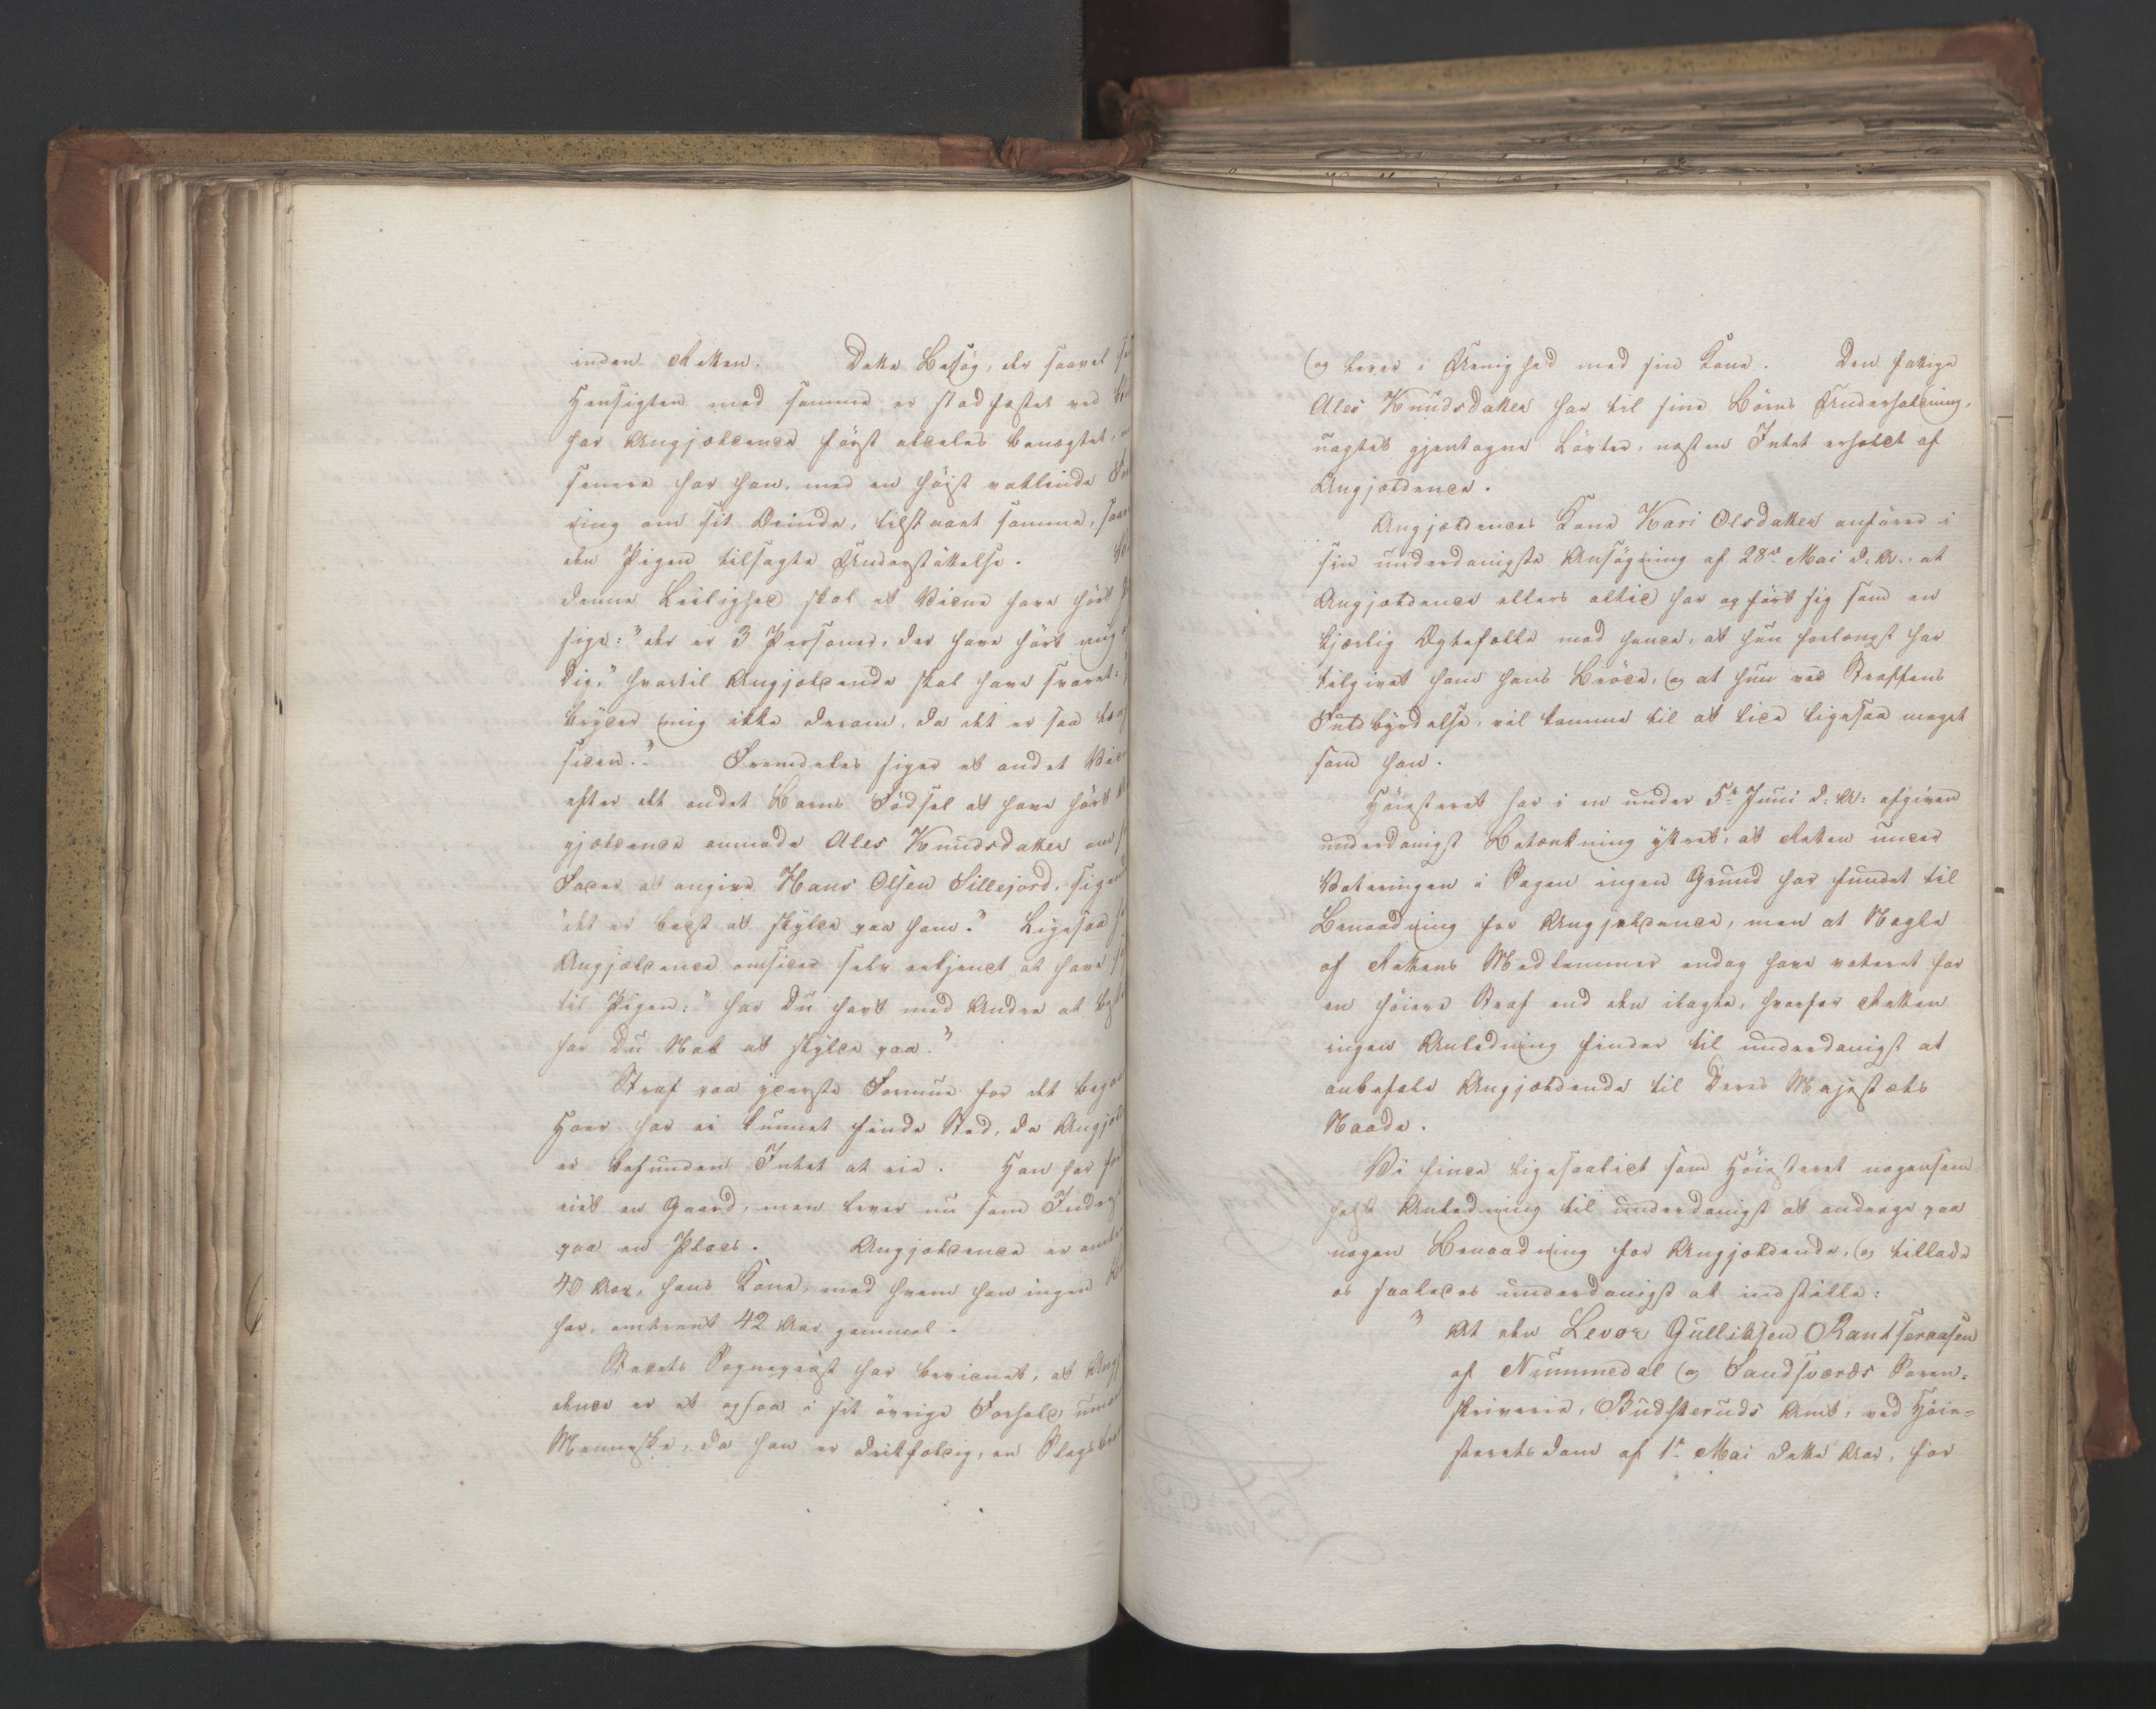 inden Retten. Dette Besøg, der saavel
Hensigten med samme er stadfæstet ved
har Angjældende først aldeles benægtet,
senere har han, med en høist vaklende
ring om sit Ærinde, tilstaaet samme,
den Pigen tilsagte Understøttelse.
denne Leilighed skal et Vidne have hørt
sige: "der er 3 Personer, der have hørt mig
dig," hvortil Angjældende skal have svaret:
bryder mig ikke derom, da det er saa
siden." Fremdeles siger et andet
efter det andet Barns Fødsel at have hørt
gjældende anmode Ales Knudsdatter om
Fader at angive Hans Olsen Sillejord,
"det er bedst at skylde paa ham." Ligesaa
Angjældende omsider selv erkjendt at have
til Pigen: "har Du havt med Andre at
har Du Nok at skylde paa."
Straf paa yderste Formue for det
Hoer har ei kunnet finde Sted, da
er befunden Intet at eie. Han har
eiet en Gaard, men lever nu som
paa en Plads. Angjældende er
40 Aar, hans Kone, med hvem han ingen
har, omtrent 42 Aar gammel.
Stedets Sognepræst har bevidnet, at
dende er et ogsaa i sit øvrige Forhold
Menneske, da han er drikfældig, en
og lever i Uenighed med sin Kone. Den fattige
Ales Knudsdatter har til sine Börns Underholdning,
uagtet gjentagne Løvter, næsten Intet erholdt af
Angjældende.
Angjældendes Kone Kari Olsdatter anfører i
sin underdanigste Ansøgning af 28de Mai d: A:, at
Angjældende ellers altid har opført sig som en
kjærlig Ægtefælle mod hende, at hun forlængst har
tilgivet ham hans Brøde, og at hun ved Straffens
Fuldbyrdelse vil komme til at lide ligesaa meget
som han.
Høiesteret har i en under 5te Juni d: A: afgiven
underdanigst Betænkning yttret, at Retten under
Voteringen i Sagen ingen Grund har fundet til
Benaadning for Angjældende, men at Nogle
af Rettens Medlemmer endog have voteret for
en høiere Straf end den ilagte, hvorfor Retten
ingen Anledning finder til underdanigst at
anbefale Angjældende til Deres Majestæts
Naade.
Vi finde ligesaalidt som Høiesteret nogensom-
helst Anledning til underdanigst at andrage paa
nogen Benaadning for Angjældende, og tillade
os saaledes underdanigst at indstille:
" At den Levor Gulliksen Rantseraasen
af Nummedal og Sandsværds Soren-
skriverie, Budskeruds Amt, ved Høie-
steretsdom af 1te Mai dette Aar, for